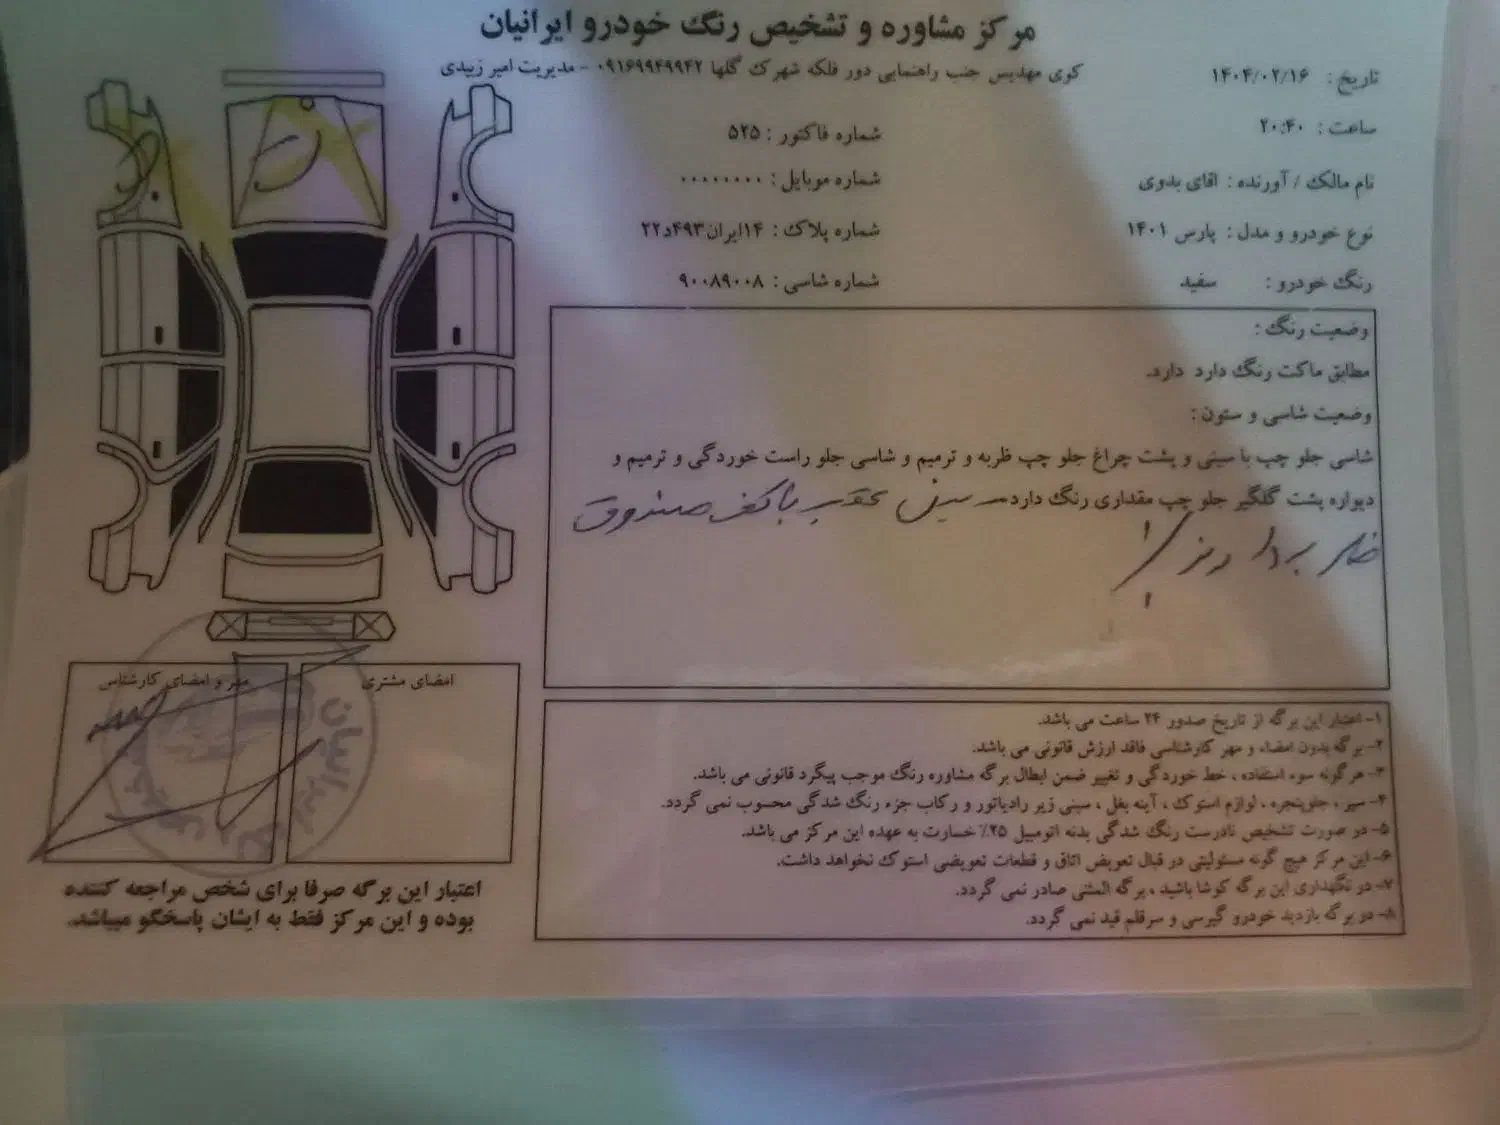 مرکز مشاوره و تشخیص رنگ خودرو ایرانیان
کوی مهدیس جنب راهنمایی دور فلکه شهرک گلها ۰۹۱۶۹۹۴۹۹۴۲ - مدیریت امیر زبیدی
تاریخ : ۱۴۰۴/۰۲/۱۶
ساعت : ۲۰:۴۰
شماره فاکتور : ۵۲۵
نام مالک / آورنده : اقای بدوی
شماره موبایل : ۰۰۰۰۰۰۰۰۰
نوع خودرو و مدل : پارس ۱۴۰۱
شماره پلاک : ۱۴ایران۴۹۳د۲۲
رنگ خودرو : سفید
شماره شاسی : ۹۰۰۸۹۰۰۸
وضعیت رنگ :
مطابق ماکت رنگ دارد دارد.
وضعیت شاسی و ستون :
شاسی جلو چپ با سینی و پشت چراغ جلو چپ ظربه و ترمیم و شاسی جلو راست خوردگی و ترمیم و
دیواره پشت گلگیر جلو چپ مقداری رنگ دارد سینی عقب با کف صندوق
امضای مشتری
مهر و امضای کارشناس
ایرانیان
۱- اعتبار این برگه از تاریخ صدور ۲۴ ساعت می باشد.
۲- برگه بدون امضاء و مهر کارشناسی فاقد ارزش قانونی می باشد.
۳- هرگونه سوء استفاده ، خط خوردگی و تغییر ضمن ابطال برگه مشاوره رنگ موجب پیگرد قانونی می باشد.
۴- سپر ، جلوپنجره ، لوازم استوک ، آینه بغل ، سینی زیر رادیاتور و رکاب جزء رنگ شدگی محسوب نمی گردد.
۵- در صورت تشخیص نادرست رنگ شدگی بدنه اتومبیل ۲۵٪ خسارت به عهده این مرکز می باشد.
۶- این مرکز هیچ گونه مسئولیتی در قبال تعویض اتاق و قطعات تعویضی استوک نخواهد داشت.
۷- در نگهداری این برگه کوشا باشید ، برگه المثنی صادر نمی گردد.
۸- در برگه بازدید خودرو گیرسی و سرقلم قید نمی گردد.
اعتبار این برگه صرفا برای شخص مراجعه کننده
بوده و این مرکز فقط به ایشان پاسخگو میباشد.